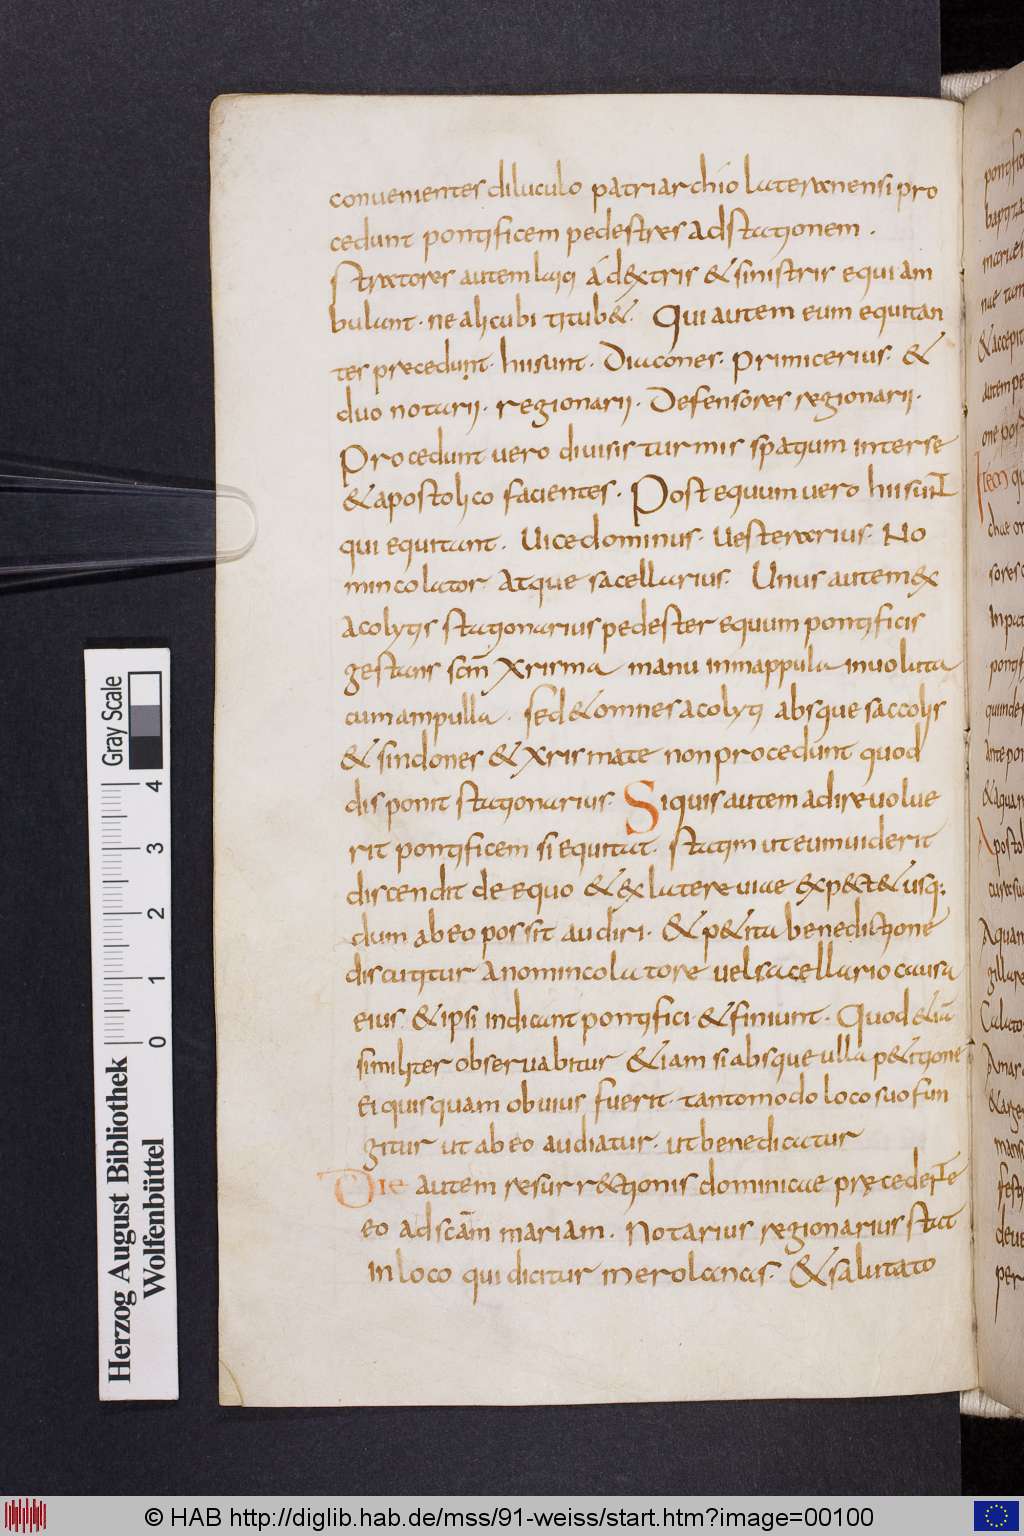 conuenientes diluculo patriarchio lateranensi pro
cedunt pontificem pedestres ad stationem .
stratores autem laici ád extris & sinistris equi am
bulant · ne alicubi titub& · Qui autem eum equitan
tes precedunt · hii sunt · Diacones · primicerius · &
duo notarii · regionarii · Defensores regionarii ·
Procedunt uero diuisis turmis spatium inter se
& apostolico facientes · Post equum uero hii sunt
qui equitant · Uicedominus · Uesterarius · No
mincolator atque sacellarius · Unus autem ex
acolytis stationarius pedester equum pontificis
gestans scm̄ Xrisma manu in mappula inuoluta
cum ampulla · sed & omnes acolyti absque saccolis
& sindones & Xrismate non procedunt quod
disponit stationarius · Siquis autem adire uolue
rit pontificem si equitat · statim ut eum uiderit
discendit de equo & ex latere uiae expect& usq;
dum ab eo possit audiri · & p&ita benedictione
discutitur a nomincolatore uel sacellario causa
eius & ipsi indicant pontifici & finiunt · Quod &iā
similiter obseruabitur &iam si absque ulla p&itione
ei quisquam obuius fuerit · tantomodo loco suo fun
gitur ut ab eo audiatur · ut benedicatur
Die autem resurr&tionis dominicae pręcedente
eo ad scām mariam . Notarius regionarius stat
in loco qui dicitur merolanas · & salutato
pontific
Item qu
Herzog August Bibliothek
Wolfenbüttel
Gray Scale
0 1 2 3 4
© HAB http://diglib.hab.de/mss/91-weiss/start.htm?image=00100